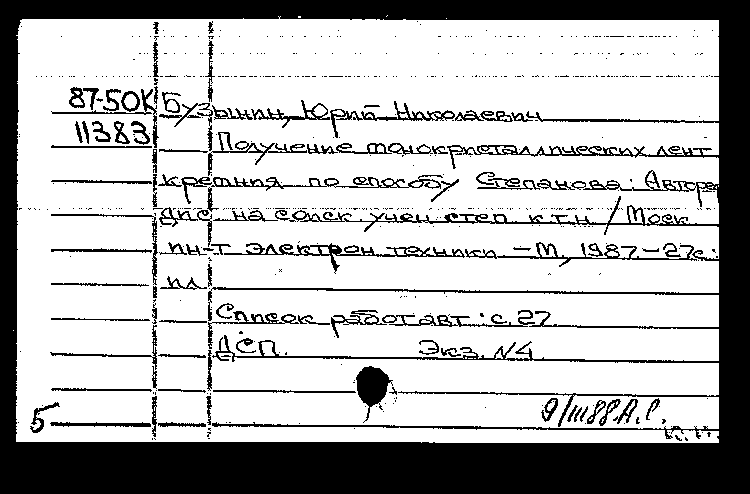 87-50К Бузынин, Юрий Николаевич
11383 Получение монокристаллических лент
кремния по способу Степанова: Авторе
дис. на соиск. учен. степ. к.т.н. / Моск.
ин-т электрон. техники. – М., 1987. – 27с.:
ил.
Список работ авт.: с. 27.
ДСП. Экз. N4.
5 9/III88 А.С.